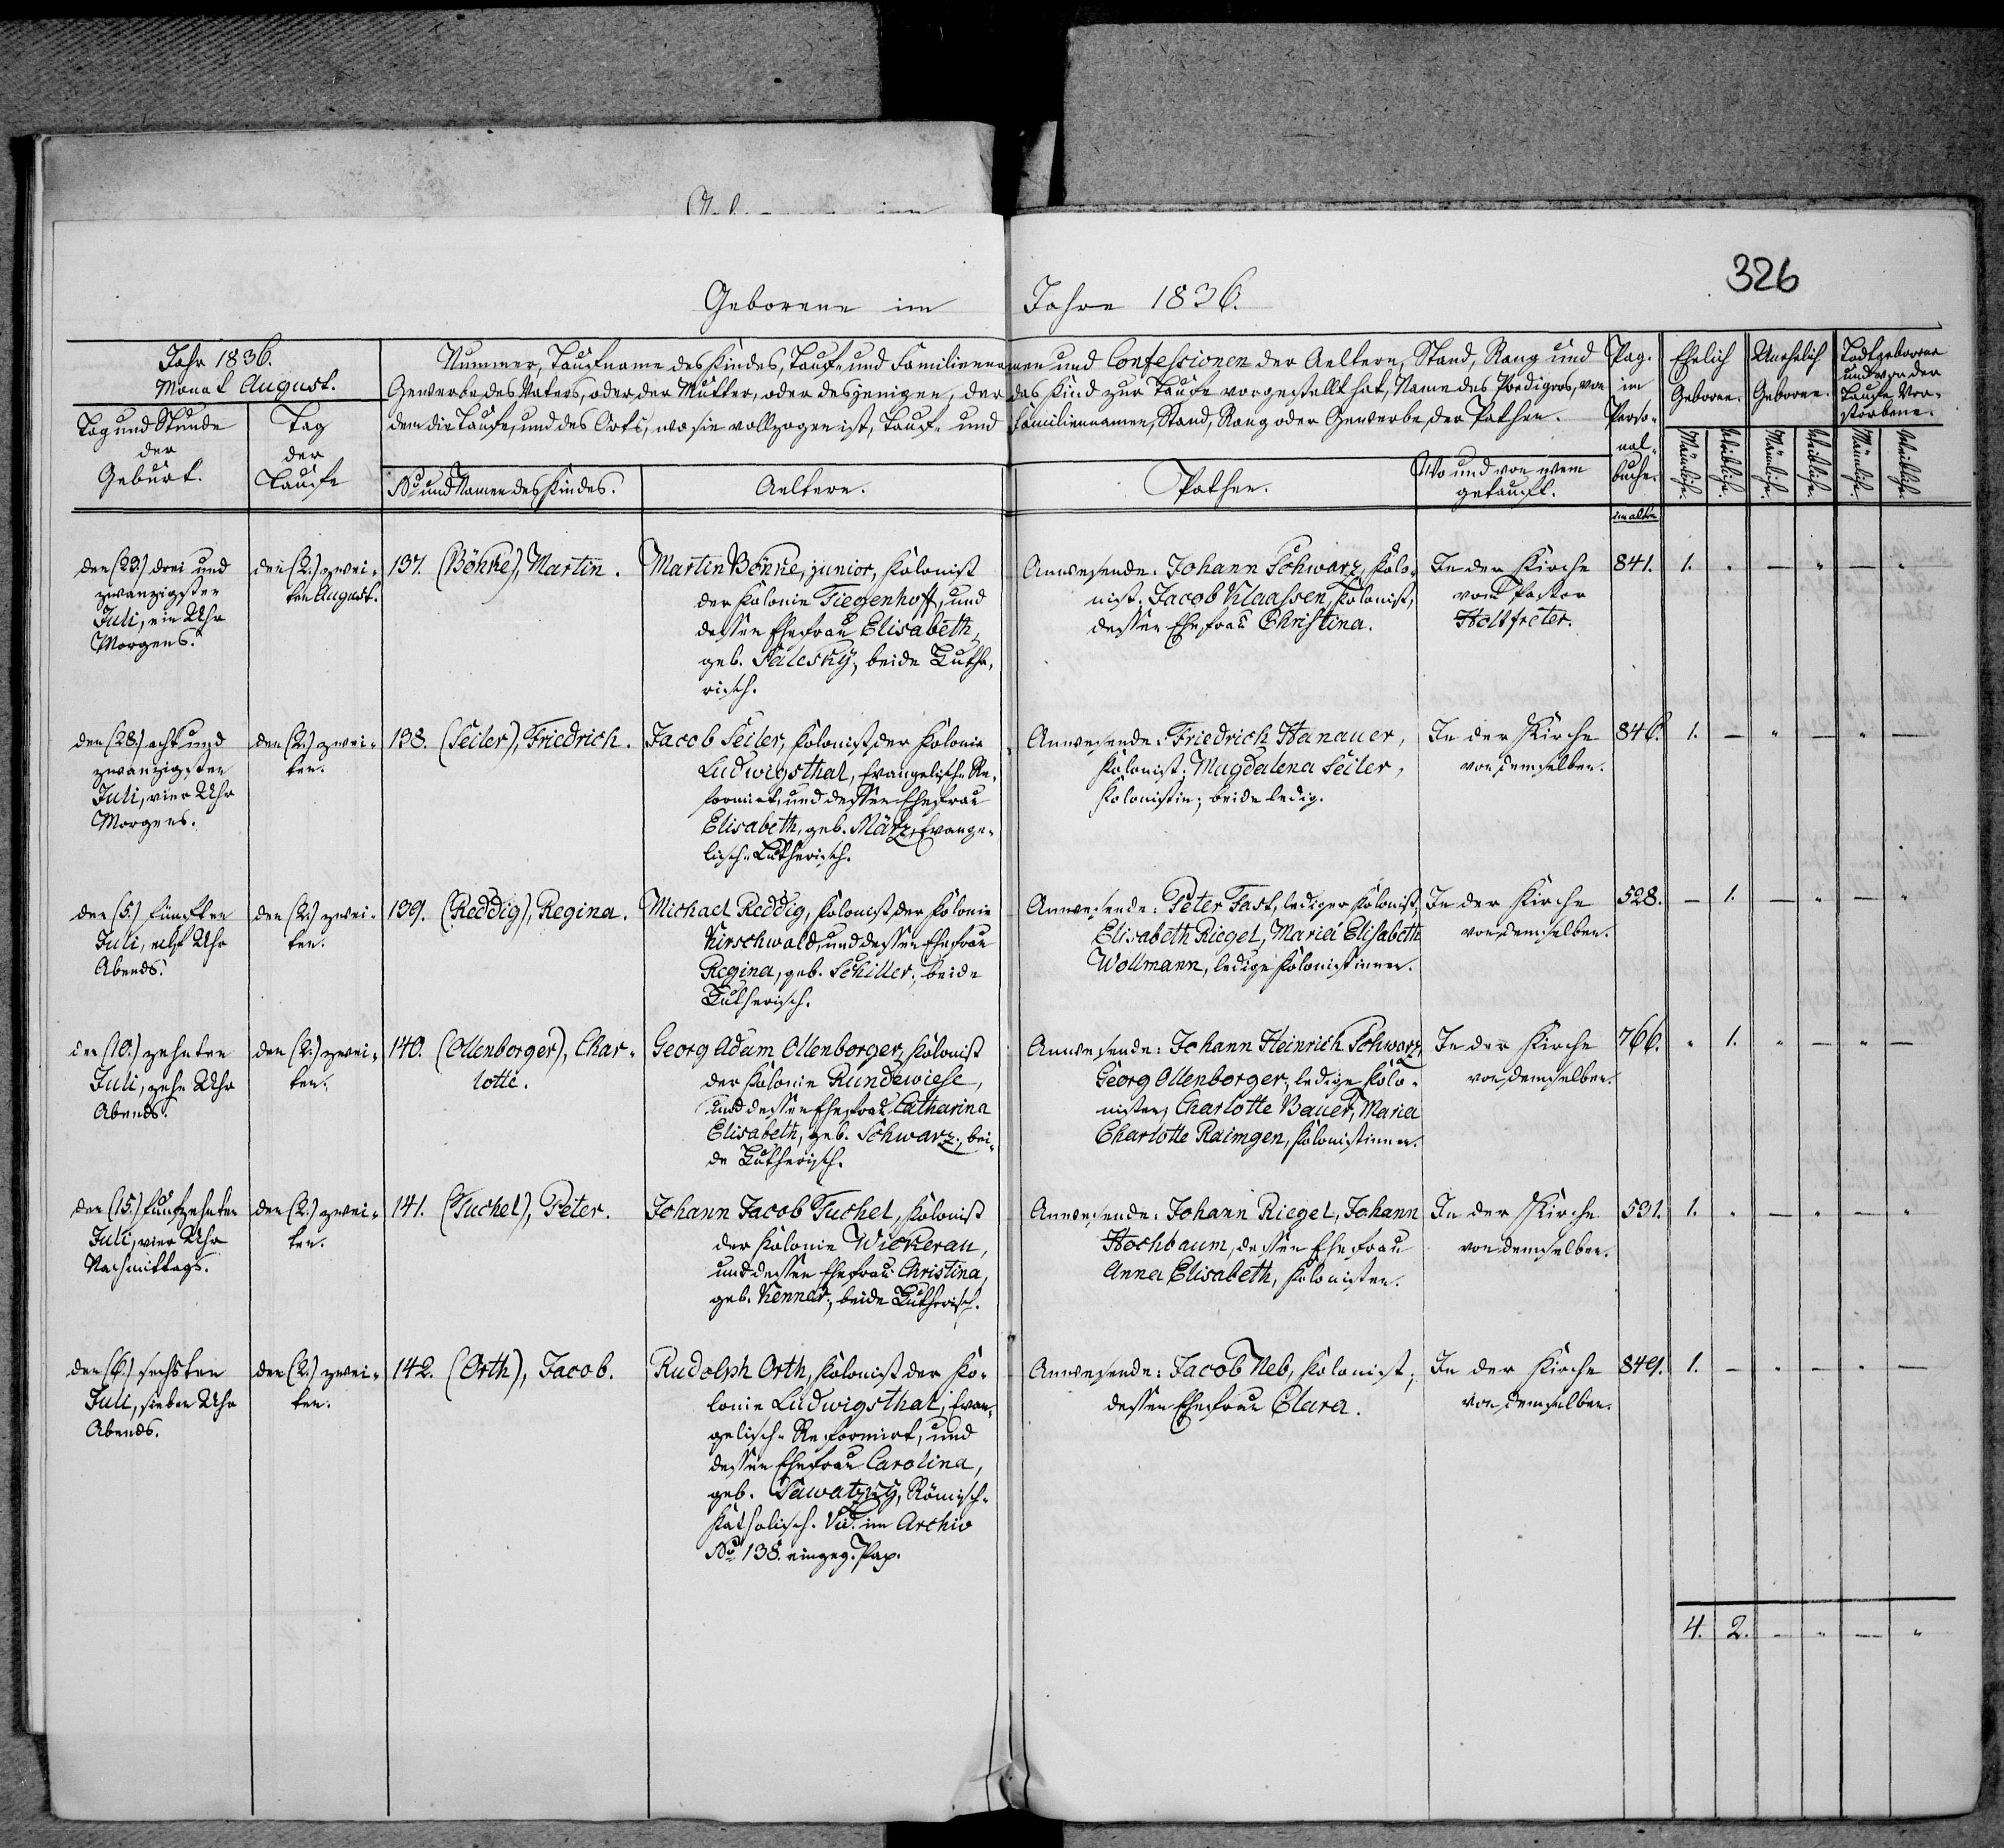 326
Geborene im Jahre 1836.
Jahr 1836.
Monat August.
Tag und Stunde
der
Geburt.
Tag
der
Taufe
Nummer, Taufname des Kindes, Tauf- und Familiennamen und Confessionen der Aeltern, Stand, Rang und
Gewerbe des Vaters, oder der Mutter, oder desjenigen, der das Kind zur Taufe vorgestellt hat, Name des Predigers, von
dem die Taufe, und des Orts, wo sie vollzogen ist, Tauf- und Familiennamen, Stand, Rang oder Gewerbe der Pathen.
No und Namen des Kindes.
Aeltern.
Pathen.
Wo und von wem
getauft.
Pag.
im
Perso-
nal-
buche.
im alten
Ehelich
Geborene.
Unehelich
Geborene.
Todtgeborene
und vor der
Taufe Ver-
storbene.
Männliche.
Weibliche.
Männliche.
Weibliche.
Männliche.
Weibliche.
den (23.) drei und
zwanzigsten
Juli, ein Uhr
Morgens.
den (2.) zwei-
ten August.
137. (Bönke), Martin.
Martin Bönke, junior, Kolonist
der Kolonie Tiegenhoff, und
dessen Ehefrau Elisabeth,
geb. Salesky, beide Luthe-
risch.
Anwesende: Johann Schwarz, Kolo-
nist; Jacob Klaassen, Kolonist,
dessen Ehefrau Christina.
In der Kirche
vom Pastor
Holtfreter.
841. 1. " — " — "
den (28.) acht und
zwanzigsten
Juli, vier Uhr
Morgens.
den (2.) zwei-
ten.
138. (Seiler), Friedrich.
Jacob Seiler, Kolonist der Kolonie
Ludwigsthal, Evangelisch-Re-
formirt, und dessen Ehefrau
Elisabeth, geb. März, Evange-
lisch-Lutherisch.
Anwesende: Friedrich Hanauer,
Kolonist; Magdalena Seiler,
Kolonistin; beide ledig.
In der Kirche
von demselben.
846. 1. — " — " —
den (5.) fünften
Juli, elf Uhr
Abends.
den (2.) zwei-
ten.
139. (Reddig), Regina.
Michael Reddig, Kolonist der Kolonie
Kirschwald, und dessen Ehefrau
Regina, geb. Schiller, beide
Lutherisch.
Anwesende: Peter Fast, lediger Kolonist,
Elisabeth Riegel, Maria Elisabeth
Wollmann, ledige Kolonistinnen.
In der Kirche
von demselben.
528. — 1. — " — "
den (10.) zehnten
Juli, zehn Uhr
Abends.
den (2.) zwei-
ten.
140. (Ollenborger), Char-
lotte.
Georg Adam Ollenborger, Kolonist
der Kolonie Rundewiese,
und dessen Ehefrau Catharina
Elisabeth, geb. Schwarz, bei-
de Lutherisch.
Anwesende: Johann Heinrich Schwarz,
Georg Ollenborger, ledige Kolo-
nisten; Charlotte Bauer, Maria
Charlotte Raimgen, Kolonistinnen.
In der Kirche
von demselben.
766. " 1. " — " —
den (15.) funfzehnten
Juli, vier Uhr
Nachmittags.
den (2.) zwei-
ten.
141. (Tuchel), Peter.
Johann Jacob Tuchel, Kolonist
der Kolonie Wickerau,
und dessen Ehefrau Christina,
geb. Kenner, beide Lutherisch.
Anwesende: Johann Riegel, Johann
Hochbaum, dessen Ehefrau
Anna Elisabeth, Kolonisten.
In der Kirche
von demselben.
531. 1. " — " — "
den (6.) sechsten
Juli, sieben Uhr
Abends.
den (2.) zwei-
ten.
142. (Orth), Jacob.
Rudolph Orth, Kolonist der Ko-
lonie Ludwigsthal, Evan-
gelisch-Reformirt, und
dessen Ehefrau Carolina,
geb. Sawatzky, Römisch-
Katholisch. Vid. im Archiv
No 138. eingeg. Pap.
Anwesende: Jacob Neb, Kolonist;
dessen Ehefrau Clara.
In der Kirche
von demselben.
849. 1. — " — " —
4. 2. — " — "